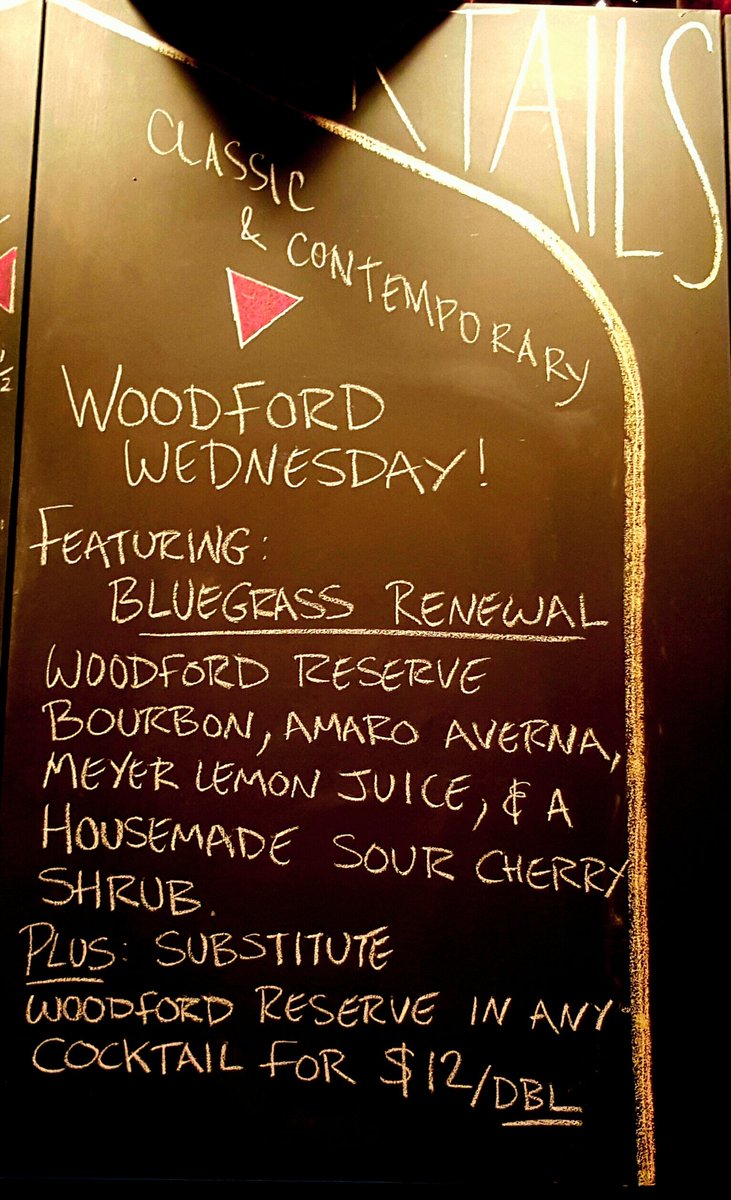 TAILS
CLASSIC
& CONTEMPORARY
WOODFORD
WEDNESDAY!
FEATURING:
BLUEGRASS RENEWAL
WOODFORD RESERVE
BOURBON, AMARO AVERNA,
MEYER LEMON JUICE, & A
HOUSEMADE SOUR CHERRY
SHRUB.
PLUS: SUBSTITUTE
WOODFORD RESERVE IN ANY
COCKTAIL FOR $12/DBL